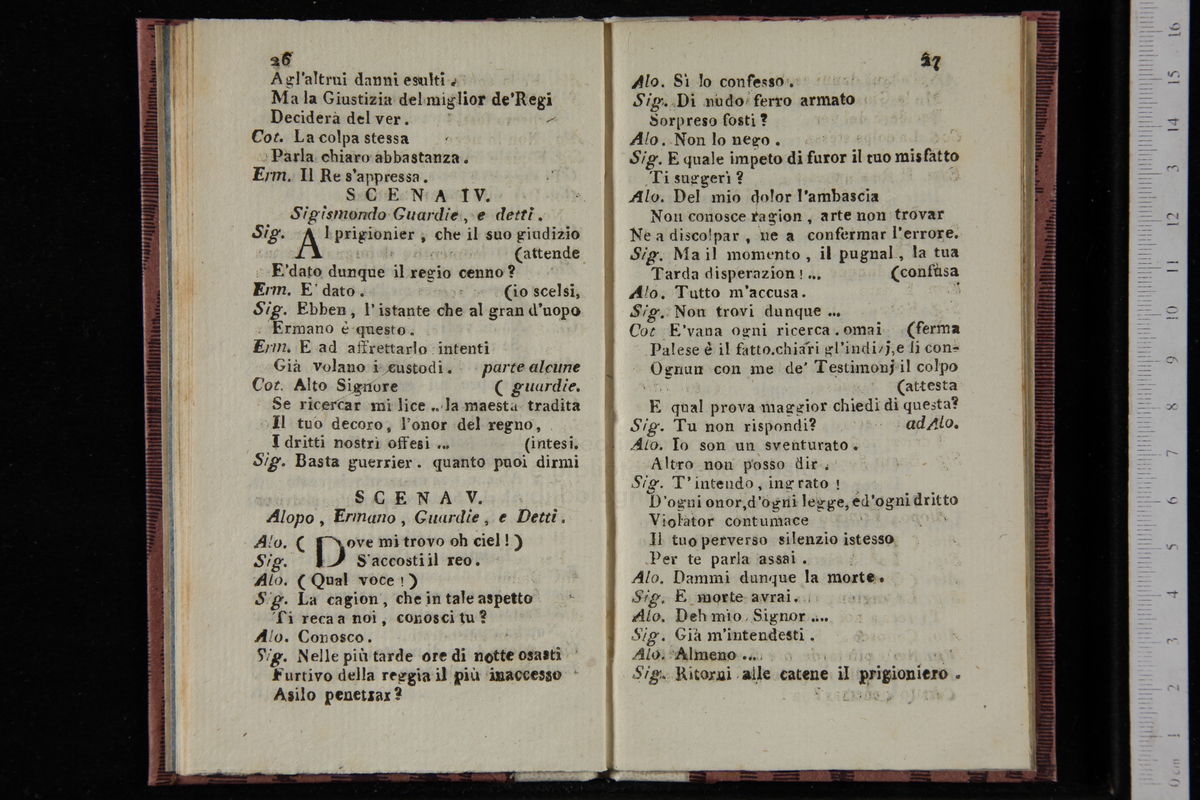 26
Agl'altrui danni esulti.
Ma la Giustizia del miglior de'Regi
Deciderà del ver.
Cot. La colpa stessa
Parla chiaro abbastanza.
Erm. Il Re s'appressa.
SCENA IV.
Sigismondo Guardie, e detti.
Sig. Al prigionier, che il suo giudizio
(attende
E'dato dunque il regio cenno?
Erm. E' dato. (io scelsi,
Sig. Ebben, l'istante che al gran d'uopo
Ermano è questo.
Erm. E ad affrettarlo intenti
Già volano i custodi. parte alcune
Cot. Alto Signore (guardie.
Se ricercar mi lice .. la maestà tradita
Il tuo decoro, l'onor del regno,
I dritti nostri offesi ... (intesi.
Sig. Basta guerrier. quanto puoi dirmi
SCENA V.
Alopo, Ermano, Guardie, e Detti.
Alo. (Dove mi trovo oh ciel!)
Sig. S'accosti il reo.
Alo. (Qual voce!)
Sig. La cagion, che in tale aspetto
Ti reca a noi, conosci tu?
Alo. Conosco.
Sig. Nelle più tarde ore di notte osasti
Furtivo della reggia il più inaccesso
Asilo penetrar?
27
Alo. Sì lo confesso.
Sig. Di nudo ferro armato
Sorpreso fosti?
Alo. Non lo nego.
Sig. E quale impeto di furor il tuo misfatto
Ti suggerì?
Alo. Del mio dolor l'ambascia
Non conosce ragion, arte non trovar
Ne a discolpar, ne a confermar l'errore.
Sig. Ma il momento, il pugnal, la tua
Tarda disperazion! ... (confusa
Alo. Tutto m'accusa.
Sig. Non trovi dunque ...
Cot E'vana ogni ricerca. omai (ferma
Palese è il fatto.chiari gl'indizj,e li con-
Ognun con me de' Testimonj il colpo
(attesta
E qual prova maggior chiedi di questa?
Sig. Tu non rispondi? ad Alo.
Alo. Io son un sventurato.
Altro non posso dir.
Sig. T'intendo, ingrato!
D'ogni onor,d'ogni legge,ed'ogni dritto
Violator contumace
Il tuo perverso silenzio istesso
Per te parla assai.
Alo. Dammi dunque la morte.
Sig. E morte avrai.
Alo. Deh mio Signor ....
Sig. Già m'intendesti.
Alo. Almeno ...
Sig. Ritorni alle catene il prigioniero.
0 cm 1 2 3 4 5 6 7 8 9 10 11 12 13 14 15 16